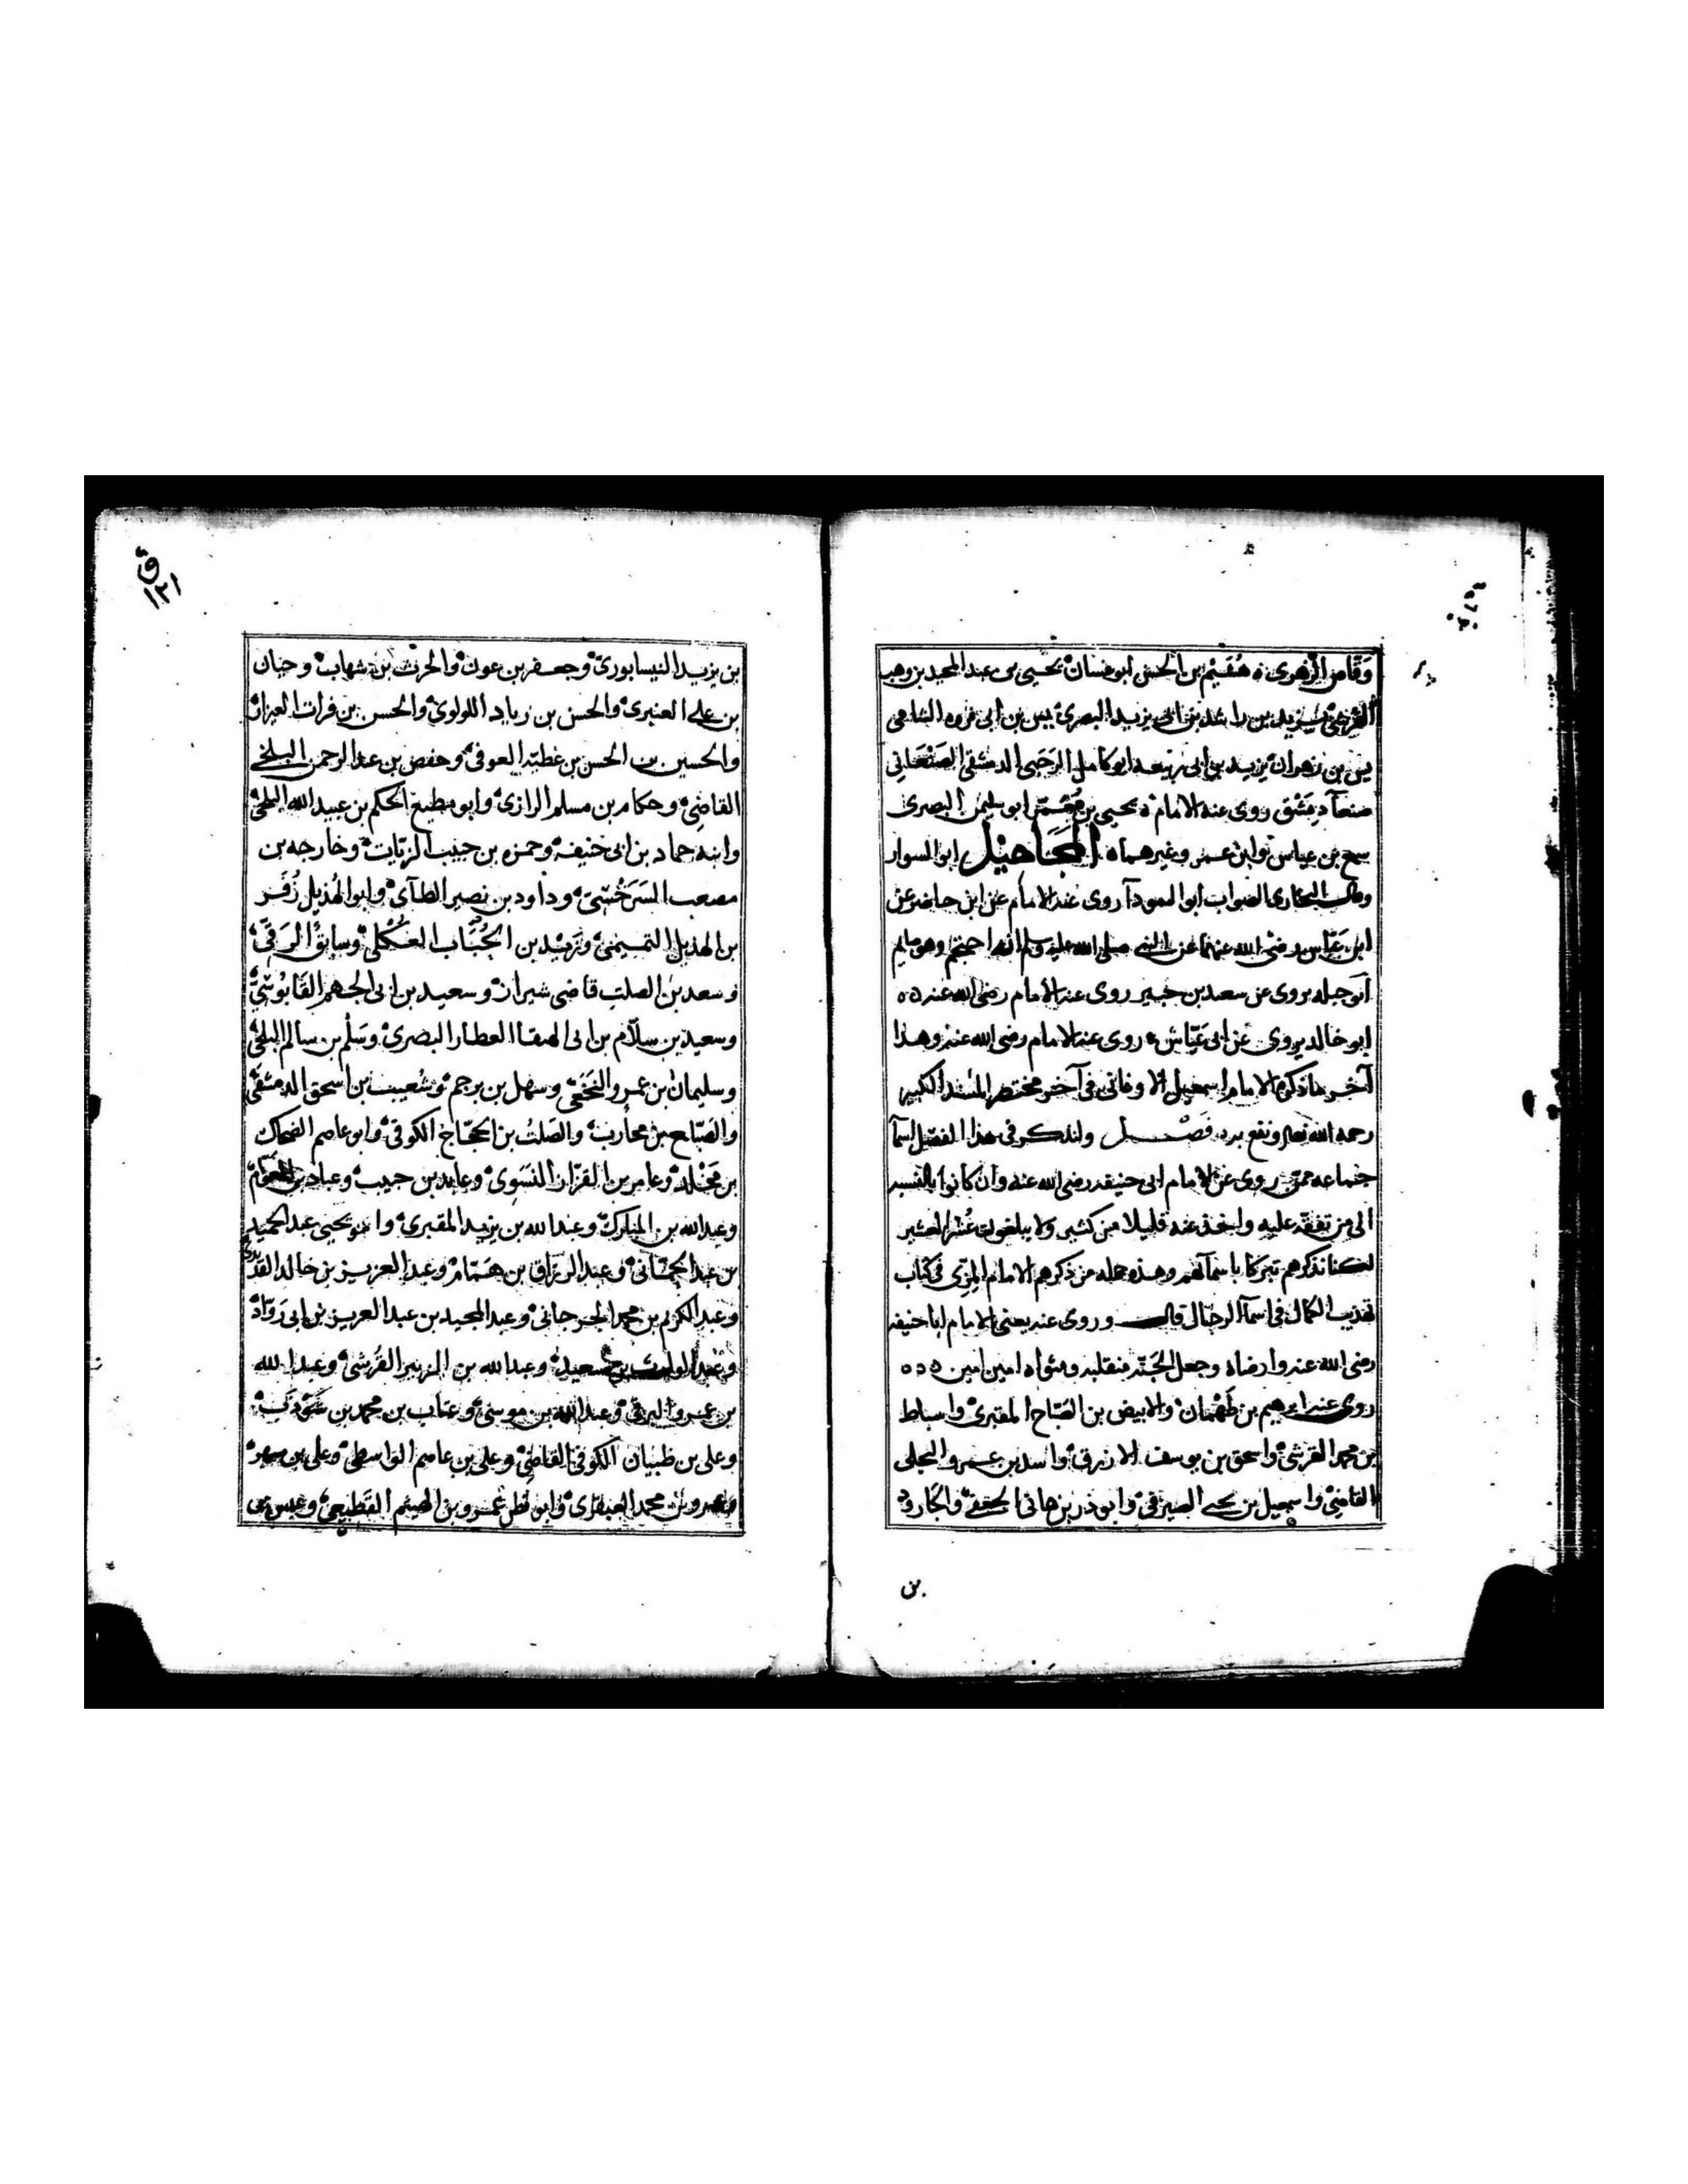 وقاص الزهري ٥ هُشَيْم بن الحسن ابو غسان يحيى بن عبد المجيد بن وهب
القرشي يزيد بن راشد بن ابي يزيد البصري يس بن ابي فروه الشامي
يس بن زهران يزيد بن ابي ربيعه ابو كامل الرحبي الدمشقي الصنعاني
صنعآ دمشق روى عنه الامام ٥ يحيى بن معتمر ابو سليمن البصرى
سمع بن عباس وابن عمر وغيرهما ٥ المجاهيل ابو السوار
وقال البخارى الصواب ابو السودآ روى عنه الامام عن ابن حاضر عن
ابن عبّاس رضى الله عنهما عن النبي صلى الله عليه وسلم انه احتجم وهو صايم
ابو جبله يروى عن سعيد بن جبير روى عنه الامام رضى الله عنه ٥٥
ابو خالد يروى عن ابى عيّاش ٥ روى عنه الامام رضى الله عنه وهذا
آخر ما ذكره الامام اسمعيل الاوغاني في آخر مختصر المسند الكبير
رحمه الله تعالى ونفع به فصل ولنذكر فى هذا الفصل اسمآ
جماعه ممن روى عن الامام ابى حنيفه رضى الله عنه وان كانوا بالنسبه
الى من تفقه عليه واخذ عنه قليلا من كثير ولا يبلغون عُشر العشير
لكنا نذكرهم تبركا باسمآئهم وهذه جمله من ذكرهم الامام المزّى في كتاب
تهذيب الكمال فى اسمآ الرجال قال وروى عنه يعنى الامام ابا حنيفه
رضى الله عنه وارضاه وجعل الجنّة منقلبه ومثواه امين امين ٥٥٥
روى عنه ابرهيم بن طَهْمان والابيض بن الصبّاح المقبرى واسباط
بن محمد القرشي واسحق بن يوسف الازرق واسد بن عمرو البجلى
القاضي واسمعيل بن يحيى الصيرفي وابو ذر بن هانى الجعفى والجارود
بن
ق
١٢١
بن يزيد النيسابوري وجعفر بن عون والحرث بن شهاب وحبان
بن على العنبري والحسن بن زياد اللولوي والحسن بن فرات القزاز
والحسين بن الحسن بن عطيّه العوفي وحفص بن عبد الرحمن البلخي
القاضِي وحكام بن مسلم الرازي وابو مطيع الحكم بن عبيد الله البلخي
وابنه حماد بن ابى حنيفه وحمزه بن حبيب الزيّات وخارجه بن
مصعب السَرَخْسيّ وداود بن نصير الطآي وابو الهُذيل زُفَر
بن الهذيل التميمي وزَيْد بن الحُبَّاب العُكلي وسابق الرَقيّ
وسعد بن الصلت قاضى شيراز وسعيد بن ابى الجهم القَابُوسّيّ
وسعيد بن سلّام بن ابى الهيفا العطار البصري وسَلْم بن سالم البلخي
وسليمان بن عمرو النخَعي وسهل بن برجم وشعيب بن اسحق الدمشقي
والصَبّاح بن محارب والصَلت بن الحجّاج الكوفي وابو عاصم الضحاك
بن مَخْلَد وعامر بن القزان النسَوِي وعايد بن حبيب وعباد بن العوّام
وعبد الله بن المبارك وعبد الله بن يزيد المقبري وابو يحيى عبد الحميد
بن عبد الحِمّاني وعبد الرزاق بن همّام وعبد العزيز بن خالد
وعبد الكريم بن محمد الجرجاني وعبد المجيد بن عبد العزيز بن ابى رَوّاد
وعبد الوارث بن سعيد وعبد الله بن الزبير القُرَشي وعبد الله
بن عمرو البرقي وعبد الله بن موسى وعتاب بن محمد بن شَوْذَب
وعلى بن ظبيان الكوفي القاضِي وعلي بن عاصم الواسطي وعلي بن
وعمرو بن محمد العبقري وابو قطن عمرو بن الهيثم القطيعي وعيسى بن